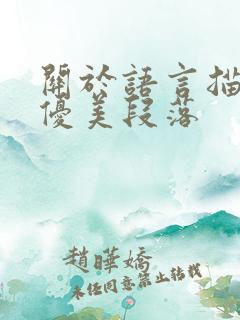 關於語言描
優美段落
趙曄嬌
未任同意禁止轉載